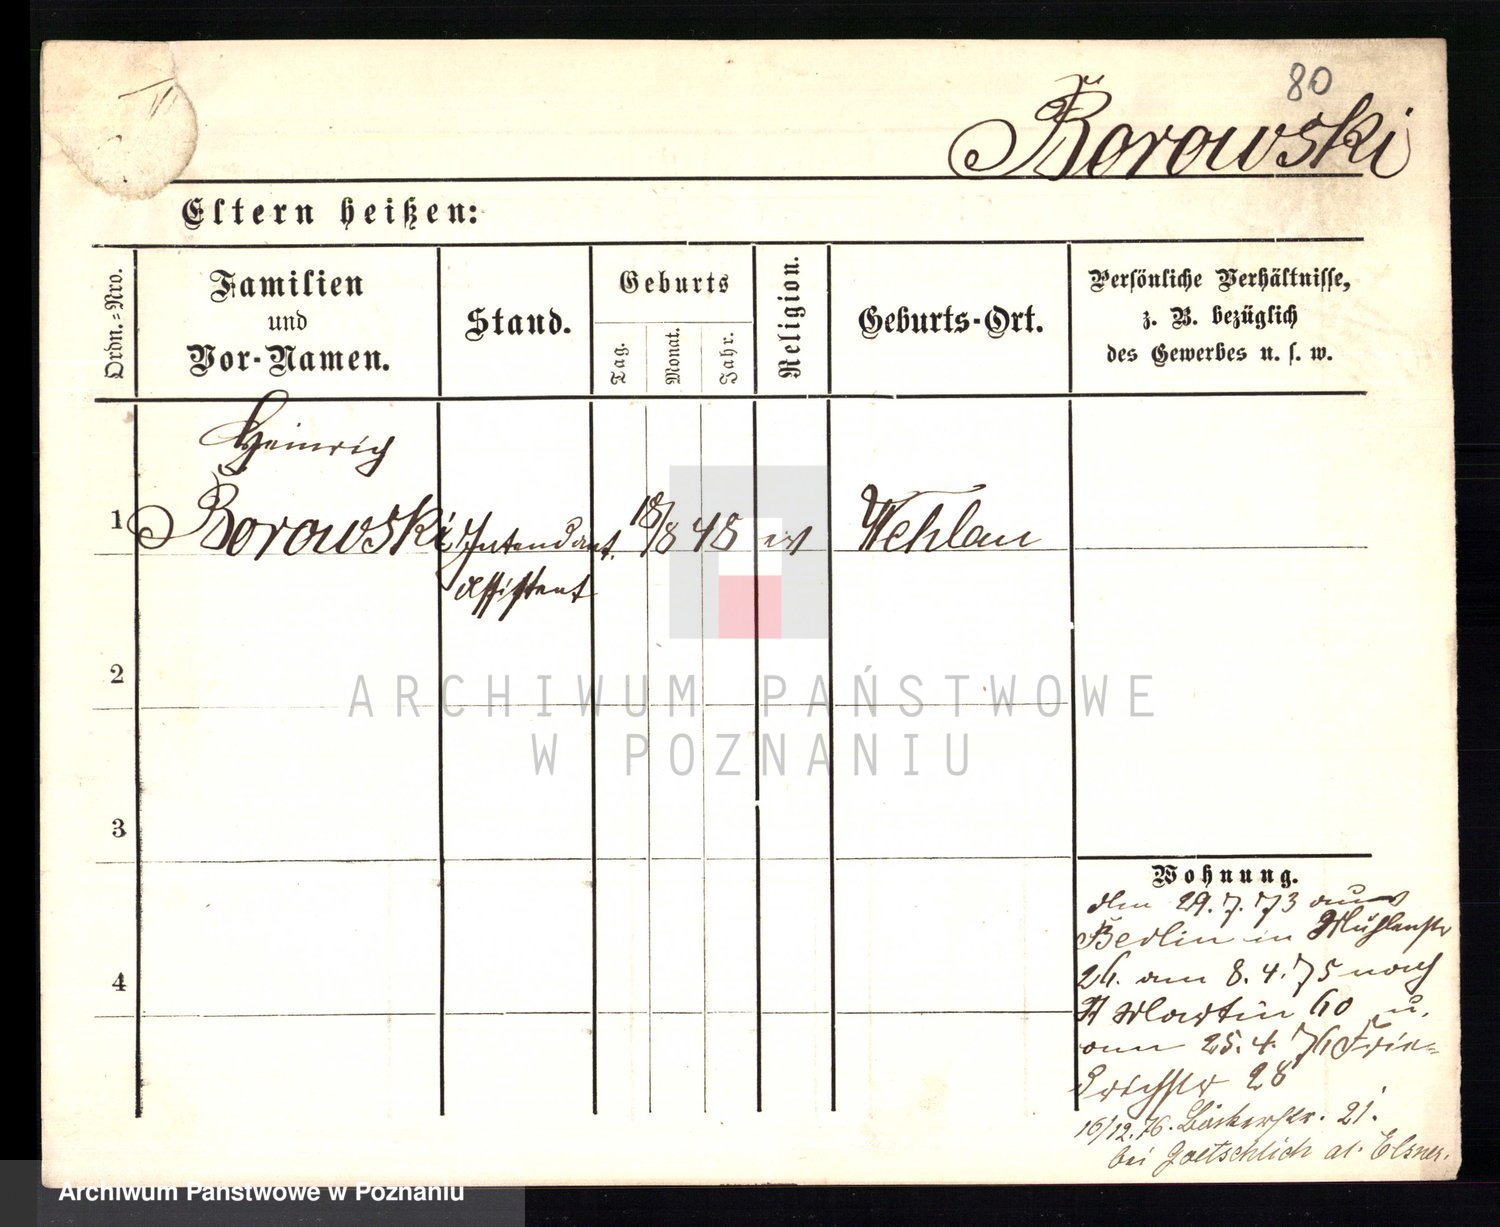 80
Borowski
Eltern heißen:
Ordn.-Nro.
Familien
und
Vor-Namen.
Stand.
Geburts
Tag.
Monat.
Jahr.
Religion.
Geburts-Ort.
Persönliche Verhältnisse,
z. B. bezüglich
des Gewerbes u. s. w.
Heinrich
1 Borowski Intendant. 18/8 48 ev Wehlau
Assistent
2
3
4
ARCHIWUM PAŃSTWOWE
W POZNANIU
Wohnung.
den 29.7.73 aus
Berlin in Mühlenstr
26. am 8.4.75 nach
St Martin 60 u.
am 25.4.76 Frie-
drichstr 28
16/12.76. Bäckerstr. 21.
bei Goetschlich Elsner.
Archiwum Państwowe w Poznaniu